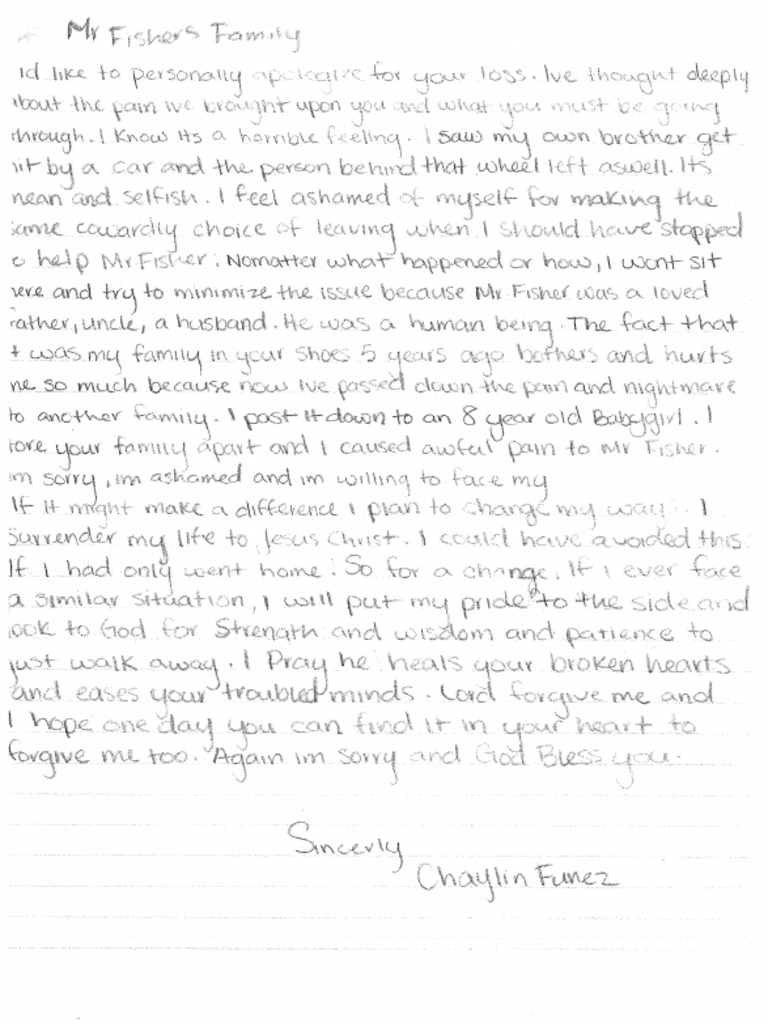 Mr Fishers Family
id like to personally apologize for your loss. Ive thought deeply
about the pain ive brought upon you and what you must be going
through. I know its a horrible feeling. I saw my own brother get
hit by a car and the person behind that wheel left aswell. Its
mean and selfish. I feel ashamed of myself for making the
same cowardly choice of leaving when I should have stopped
to help Mr Fisher. Nomatter what happened or how, I wont sit
here and try to minimize the issue because Mr. Fisher was a loved
father, uncle, a husband. He was a human being. The fact that
it was my family in your shoes 5 years ago bothers and hurts
me so much because now ive passed down the pain and nightmare
to another family. I past it down to an 8 year old Babygirl. I
tore your family apart and I caused awful pain to Mr Fisher.
im sorry, im ashamed and im willing to face my
If it might make a difference I plan to change my way. I
Surrender my life to Jesus Christ. I could have avoided this
If I had only went home. So for a change, If i ever face
a similar situation, I will put my pride to the side and
look to God for Strength and wisdom and patience to
just walk away. I Pray he heals your broken hearts
and eases your troubled minds. Lord forgive me and
I hope one day you can find it in your heart to
forgive me too. Again im sorry and God Bless you.
Sincerly
Chaylin Funez